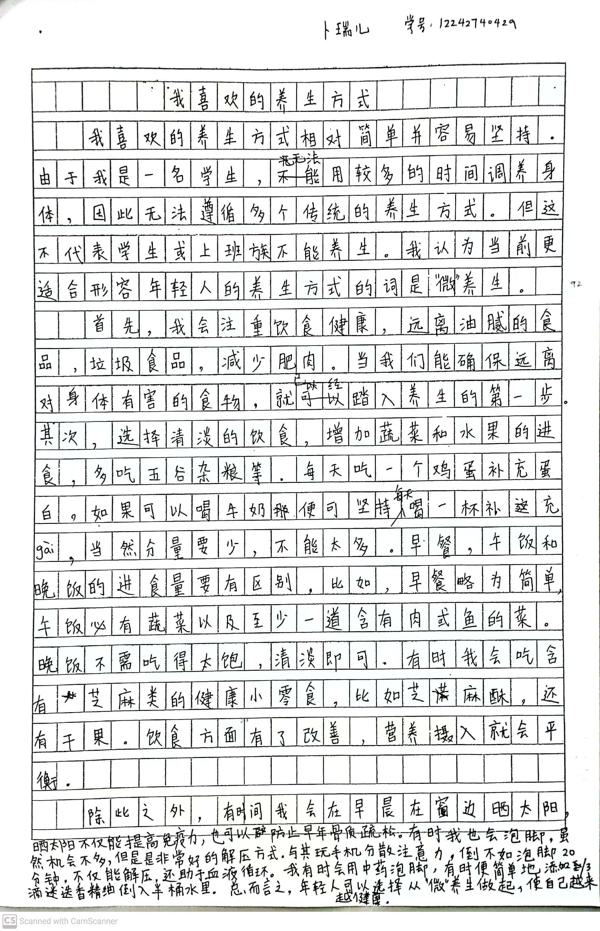 卜瑞儿 学号:12242740429
我喜欢的养生方式
我喜欢的养生方式相对简单并容易坚持.
无法
由于我是一名学生,不能用较多的时间调养身
体,因此无法遵循多个传统的养生方式。但这
不代表学生或上班族不能养生。我认为当前更
适合形容年轻人的养生方式的词是“微”养生。
92
首先,我会注重饮食健康,远离油腻的食
品,垃圾食品,减少肥肉。当我们能确保远离
已经
对身体有害的食物,就可以踏入养生的第一步。
其次,选择清淡的饮食,增加蔬菜和水果的进
食,多吃五谷杂粮等.每天吃一个鸡蛋补充蛋
每天
白,如果可以喝牛奶那便可坚持喝一杯补这充
gài,当然分量要少,不能太多.早餐,午饭和
晚饭的进食量要有区别,比如,早餐略为简单,
午饭必有蔬菜以及至少一道含有肉或鱼的菜。
晚饭不需吃得太饱,清淡即可.有时我会吃含
有芝麻类的健康小零食,比如芝麻酥,还
有干果.饮食方面有了改善,营养摄入就会平
衡.
除此之外,有时间我会在早晨在窗边晒太阳,
晒太阳不仅能提高免疫力,也可以防止早年骨质疏松。有时我也会泡脚,虽
然机会不多,但是是非常好的解压方式.与其玩手机分散注意力,倒不如泡脚20
分钟,不仅能解压,还助于血液循环。我有时会用中药泡脚,有时便简单地添加2/3
滴迷迭香精油倒入半桶水里.总而言之,年轻人可以选择从“微”养生做起,使自己越来
越健康.
CS Scanned with CamScanner